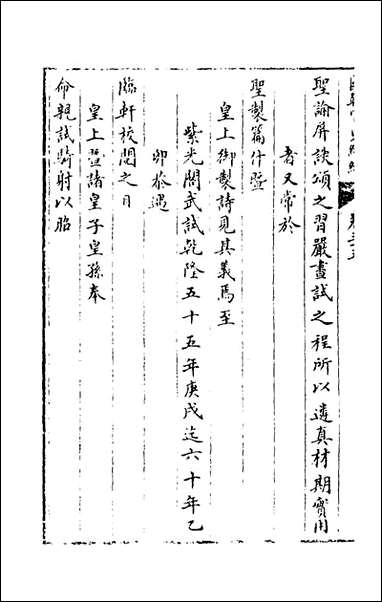 聖諭屏諛頌之習嚴畫試之程所以遴真材期實用
者又常於
聖製篇什暨
皇上御製詩見其義焉至
紫光閣武試乾隆五十五年庚戌迄六十年乙
卯恭遇
臨軒校閱之日
皇上暨諸皇子皇孫奉
命親試騎射以昭